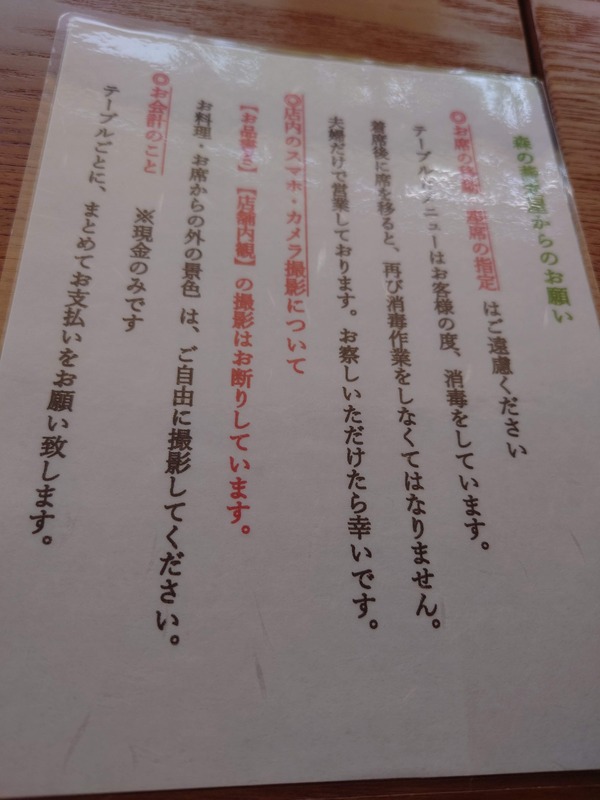 森の蕎麦屋からのお願い
◎お席の移動、座席の指定 はご遠慮ください
テーブル・メニューはお客様の度、消毒をしています。
着席後に席を移ると、再び消毒作業をしなくてはなりません。
夫婦だけで営業しております。お察しいただけたら幸いです。
◎店内のスマホ・カメラ撮影について
【お品書き】【店舗内観】の撮影はお断りしています。
お料理・お席からの外の景色 は、ご自由に撮影してください。
◎お会計のこと ※現金のみです
テーブルごとに、まとめてお支払いをお願い致します。